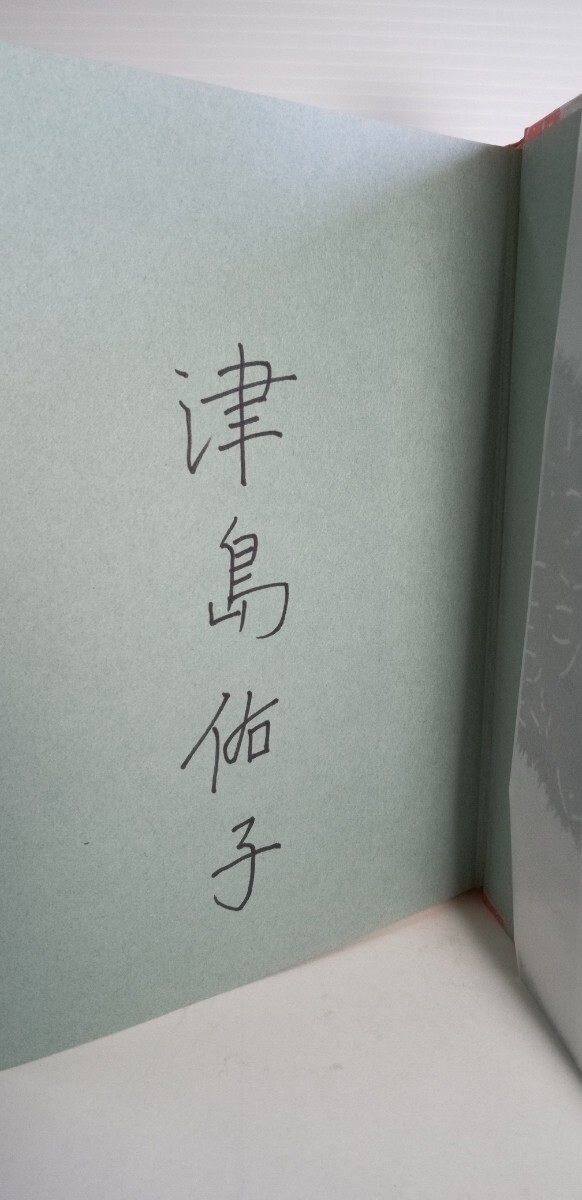 津島佑子